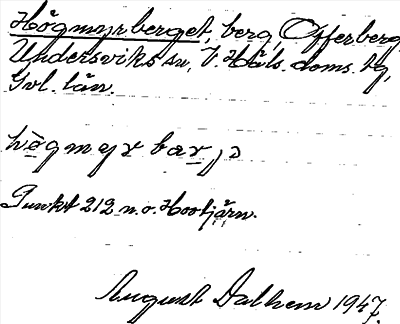 Högmyrberget, berg, Offerberg
Undersviks sn, V. Häls. doms. tg,
Gvl. län.
högmyrbarjə
Punkt 212 n.o. Hootjärn.
August Dalhem 1947.